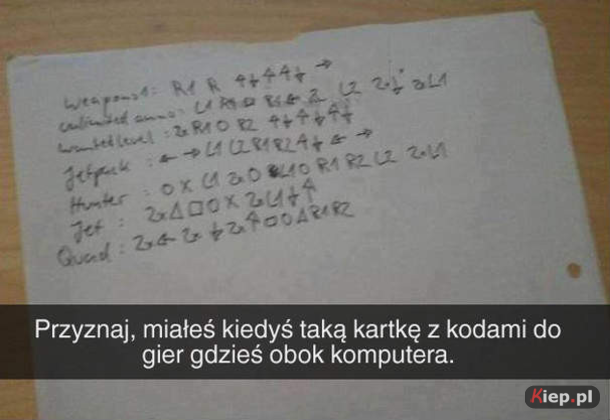 weapons1: R1 R 4↓444↓ →
unlimited ammo: L1 R1 □ R1 ← 2 L2 2x↓ 3xL1
wanted level: 2xR1 O R2 4↓4↓4↓
Jetpack: ← → L1 L2 R1 R2 4↓ ← →
Hunter: O X L1 3xO L1 O R1 R2 L2 2xL1
Jet: 2xΔ □ O X 2xL1 ↓ ↑
Quad: 2x← 2x↓ 2x↑ □ O Δ R1 R2
Przyznaj, miałeś kiedyś taką kartkę z kodami do
gier gdzieś obok komputera.
Kiep.pl